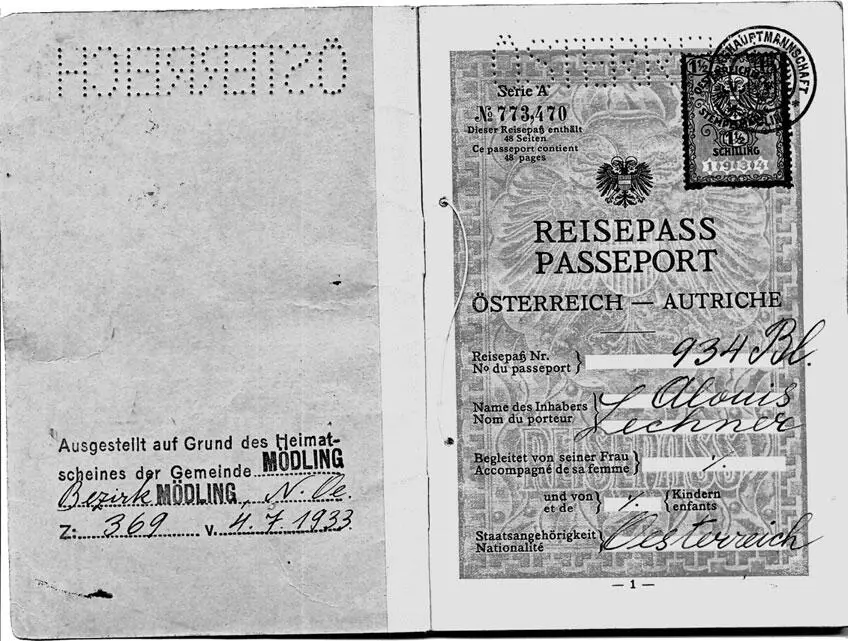 ÖSTERREICH
Ausgestellt auf Grund des Heimat-
scheines der Gemeinde MÖDLING
Bezirk MÖDLING, N. Oe.
Z: 369 v. 4. 7. 1933
Serie A
№ 773,470
Dieser Reisepaß enthält
48 Seiten
Ce passeport contient
48 pages
1½
SCHILLING
1934
REISEPASS
PASSEPORT
ÖSTERREICH — AUTRICHE
Reisepaß Nr.
No du passeport } 934 Bl.
Name des Inhabers
Nom du porteur } Alouis
Lechner
Begleitet von seiner Frau
Accompagné de sa femme } ·/.
und von
et de } ·/. { Kindern
enfants
Staatsangehörigkeit
Nationalité } Oesterreich
— 1 —